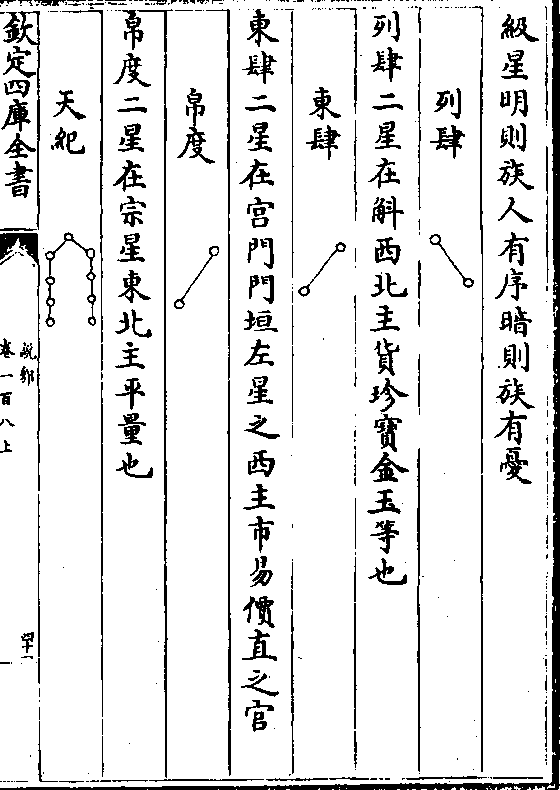 級星明則族人有序暗則族有憂
列肆
列肆二星在斛西北主貨珍寶金玉等也
東肆
東肆二星在宫門門垣左星之西主市易價直之官
帛度
帛度二星在宗星東北主平量也
天紀
欽定四庫全書
說郛
卷一百八上
四十一